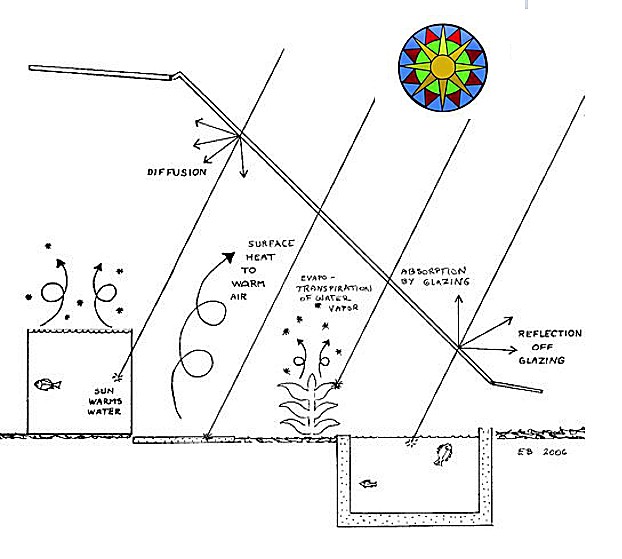 DIFFUSION
SURFACE
HEAT
TO
WARM
AIR
EVAPO-
TRANSPIRATION
OF WATER
VAPOR
ABSORPTION
BY GLAZING
REFLECTION
OFF
GLAZING
SUN
WARMS
WATER
EB 2006